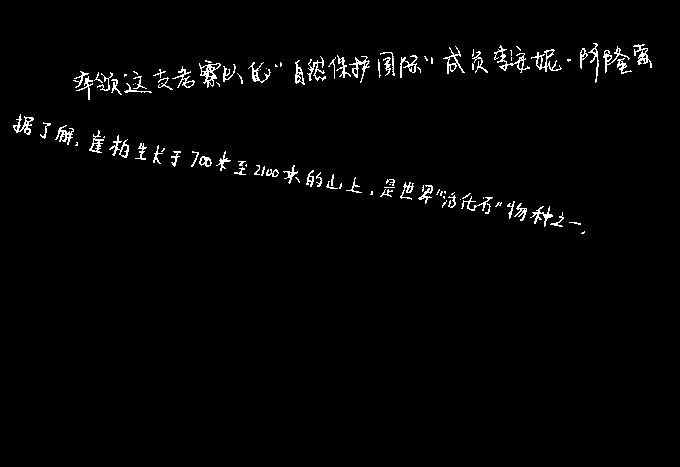 率领这支考察队的“自然保护国际”成员李安妮·阿隆索
据了解，崖柏生长于700米至2100米的山上，是世界“活化石”物种之一，